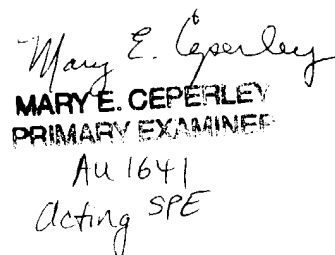 Mary E. Ceperley
MARY E. CEPERLEY
PRIMARY EXAMINER
AU 1641
Acting SPE